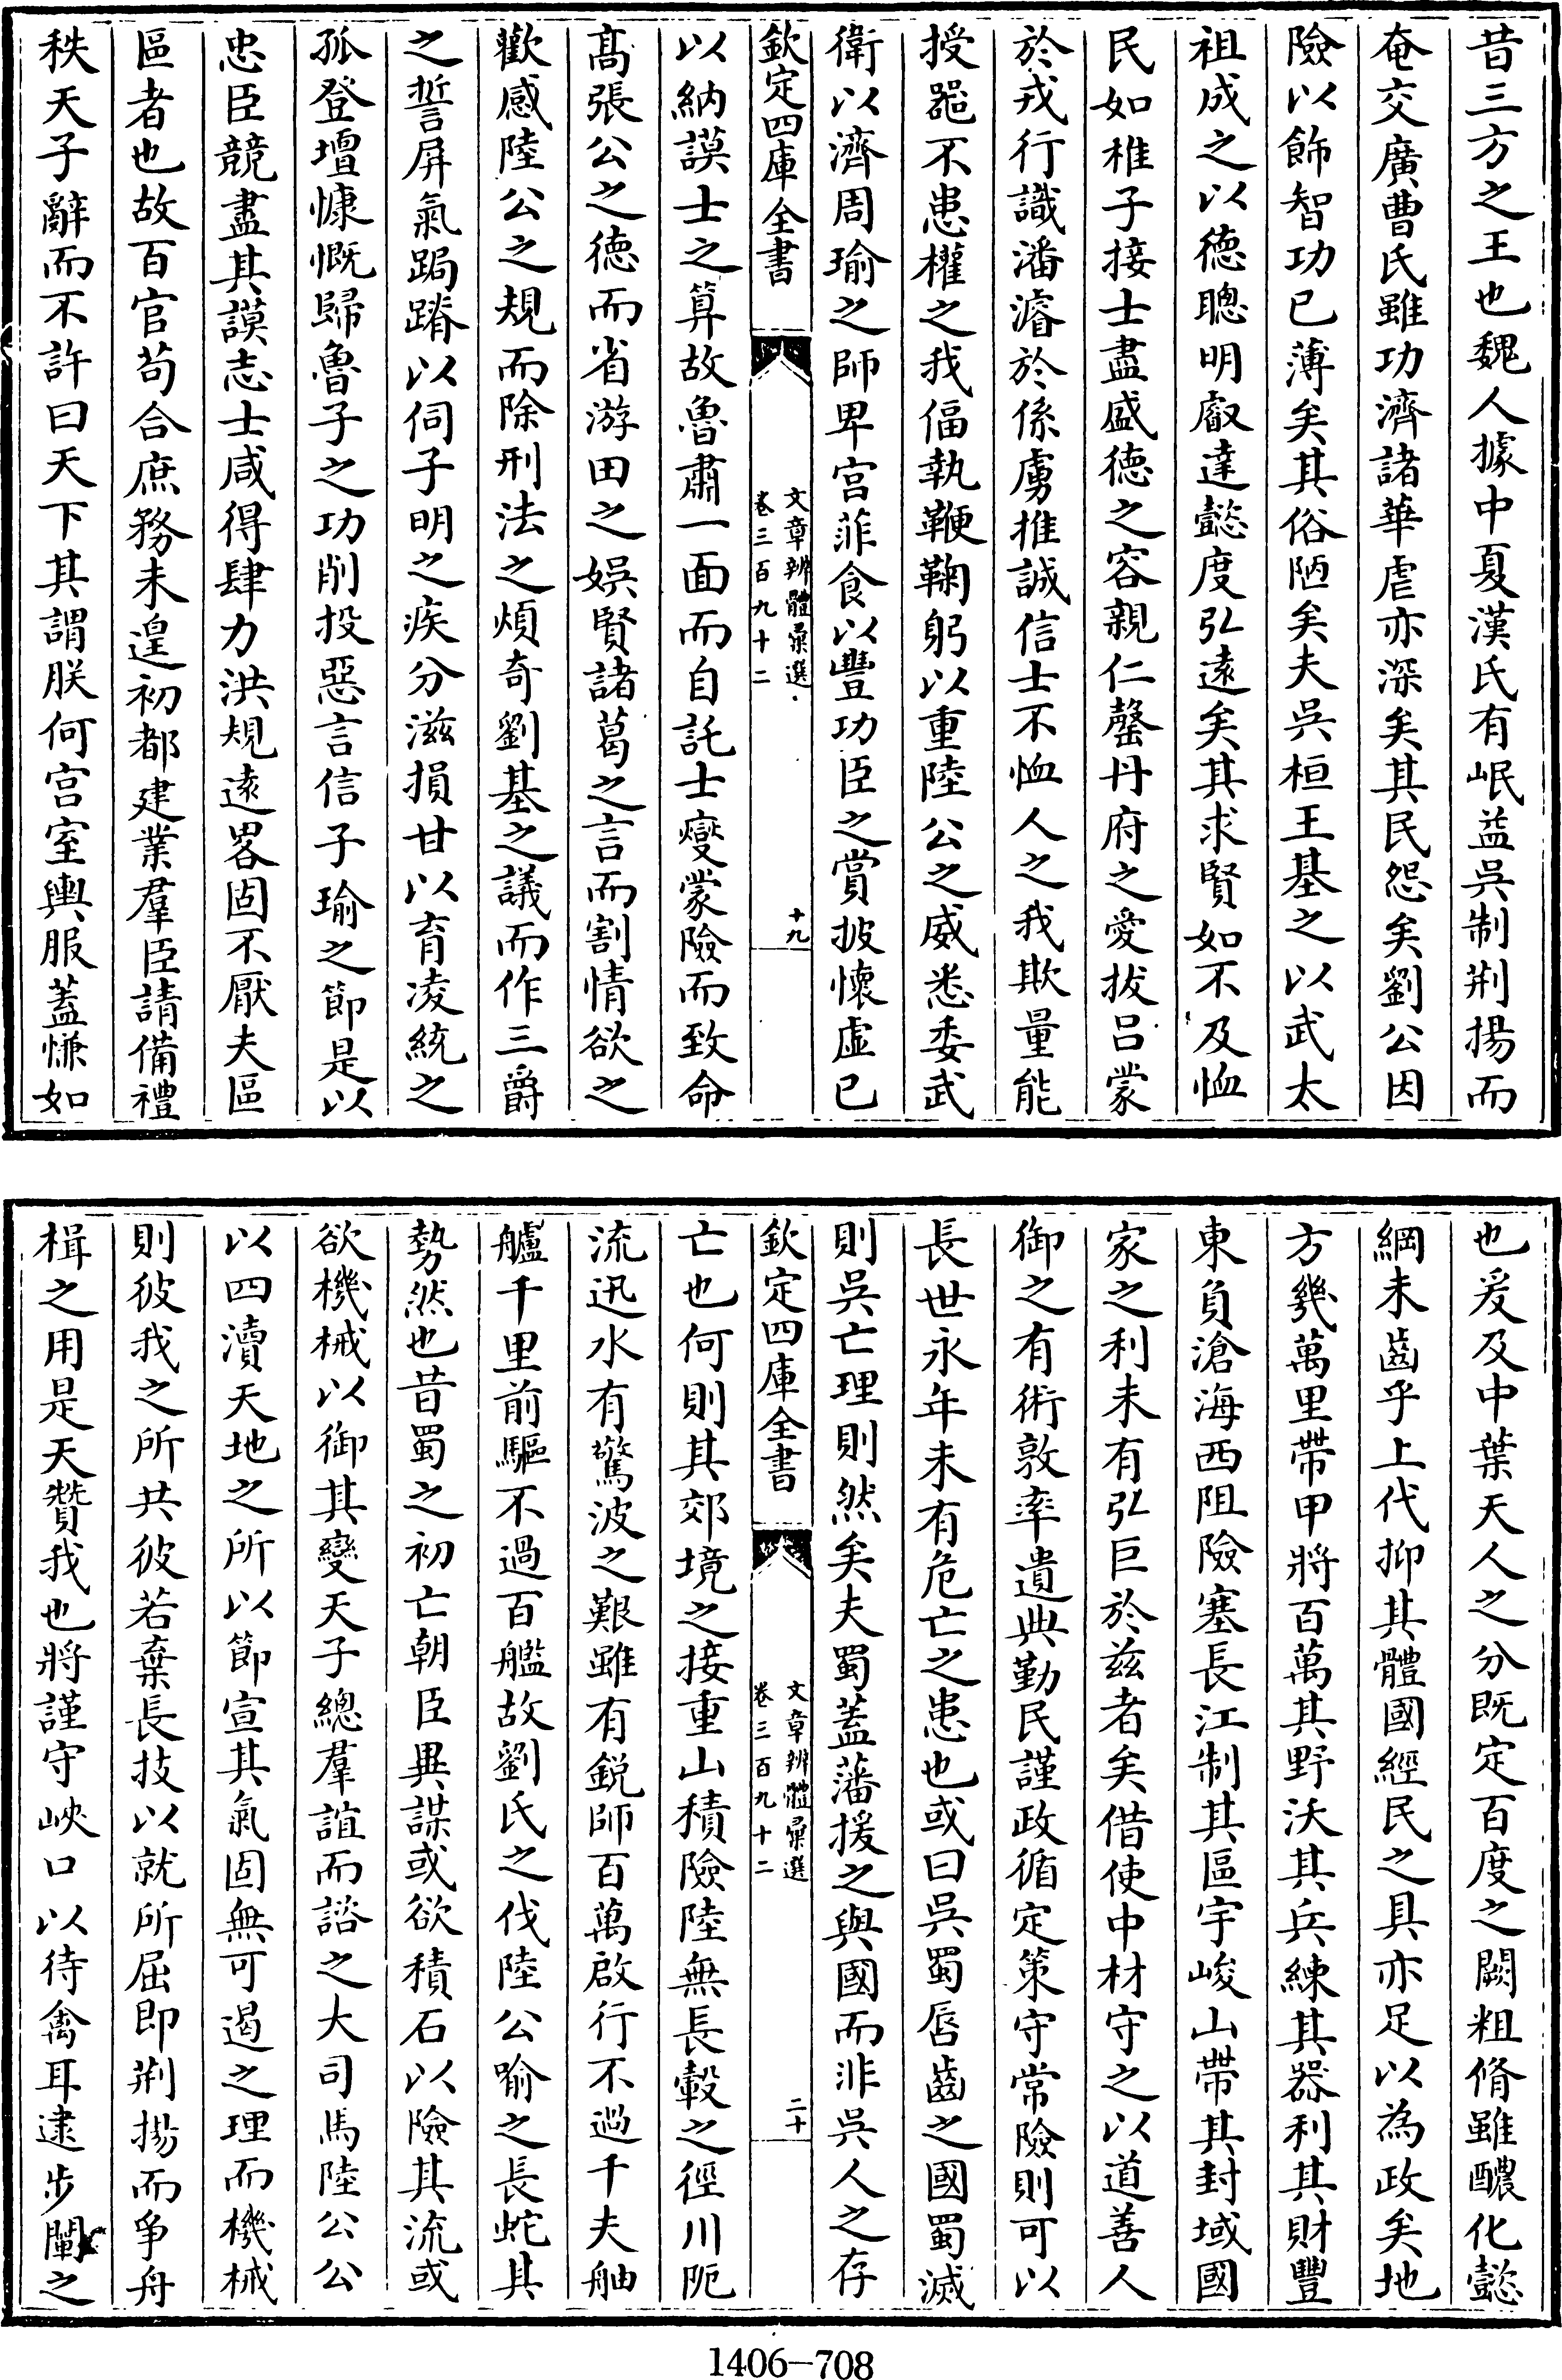 昔三方之王也魏人據中夏漢氏有岷益吳制荆揚而
奄交廣曹氏雖功濟諸華虐亦深矣其民怨矣劉公因
險以飾智功已薄矣其俗陋矣夫吳桓王基之以武太
祖成之以德聰明叡達懿度弘遠矣其求賢如不及恤
民如稚子接士盡盛德之容親仁罄丹府之愛拔吕蒙
於戎行識潘濬於係虜推誠信士不恤人之我欺量能
授噐不患權之我偪執鞭鞠躬以重陸公之威悉委武
衛以濟周瑜之師卑宫菲食以豐功臣之賞披懷虚已
欽定四庫全書
文章辨體彚選
卷三百九十二
十九
以納謨士之算故魯肅一面而自託士燮蒙險而致命
髙張公之德而省游田之娯賢諸葛之言而割情欲之
歡感陸公之規而除刑法之煩奇劉基之議而作三爵
之誓屏氣跼蹐以伺子明之疾分滋損甘以育凌統之
孤登壇慷慨歸魯子之功削投惡言信子瑜之節是以
忠臣競盡其謨志士咸得肆力洪規逺畧固不厭夫區
區者也故百官苟合庶務未遑初都建業羣臣請備禮
秩天子辭而不許曰天下其謂朕何宫室輿服蓋慊如
也爰及中葉天人之分既定百度之闕粗脩雖醲化懿
綱未齒乎上代抑其體國經民之具亦足以為政矣地
方幾萬里帶甲將百萬其野沃其兵練其器利其財豐
東負滄海西阻險塞長江制其區宇峻山帶其封域國
家之利未有弘巨於兹者矣借使中材守之以道善人
御之有術敦率遺典勤民謹政循定策守常險則可以
長世永年未有危亡之患也或曰吳蜀唇齒之國蜀滅
則吳亡理則然矣夫蜀蓋藩援之與國而非吳人之存
欽定四庫全書
文章辨體彚選
卷三百九十二
二十
亡也何則其郊境之接重山積險陸無長轂之徑川阨
流迅水有驚波之艱雖有鋭師百萬啟行不過千夫舳
艫千里前驅不過百艦故劉氏之伐陸公喻之長蛇其
勢然也昔蜀之初亡朝臣異謀或欲積石以險其流或
欲機械以御其變天子總羣誼而諮之大司馬陸公公
以四瀆天地之所以節宣其氣固無可遏之理而機械
則彼我之所共彼若棄長技以就所屈即荆揚而爭舟
楫之用是天贊我也將謹守峽口以待禽耳逮步闡之
1406—708